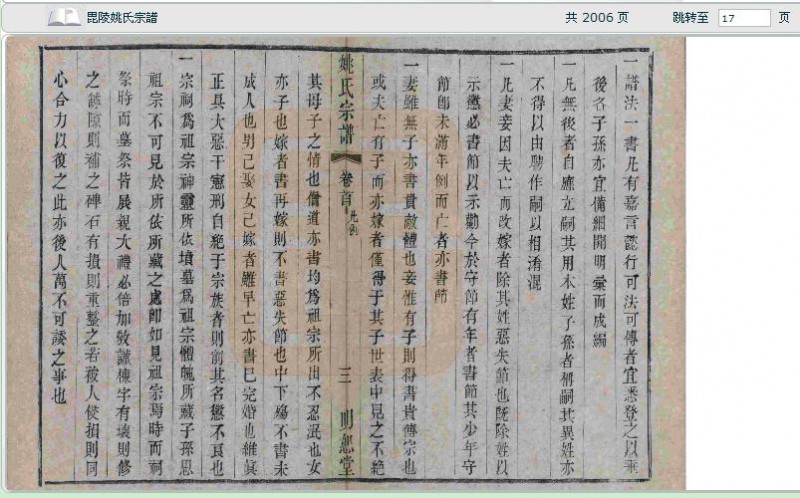 毘陵姚氏宗譜
共 2006 页
跳转至 17 页
一譜法一書凡有嘉言懿行可法可傳者宜悉登之以垂
後各子孫亦宜備細開明彙而成編
一凡無後者自應立嗣其用本姓子孫者稱嗣其異姓亦
不得以由 作嗣以相淆混
一凡妻妾因夫亡而改嫁者除其姓惡失節也既除姓以
示懲必書節以示勸今於守節有年者書節其少年守
節卽未滿年例而亡者亦書節
一妻雖無子亦書貴敵體也妾惟有子則得書貴傳宗也
或夫亡有子而亦嫁者僅得于其子世表中見之不絕
姚氏宗譜
卷首 凡例
三
明恕堂
其母子之情也僧道亦書均爲祖宗所出不忍泯也女
亦子也嫁者書再嫁則不書惡失節也中下殤不書未
成人也男已娶女已嫁者雖早亡亦書已完婚也維眞
正具大惡干憲刑自絕于宗族者則削其名懲不良也
一宗祠爲祖宗神靈所依墳墓爲祖宗體魄所藏子孫思
祖宗不可見於所依所藏之處卽如見祖宗焉時而祠
祭時而墓祭皆展親大禮必倍加敬謹棟宇有壞則修
之 隙則補之磚石有損則重整之若被人侵損則同
心合力以復之此亦後人萬不可諉之事也